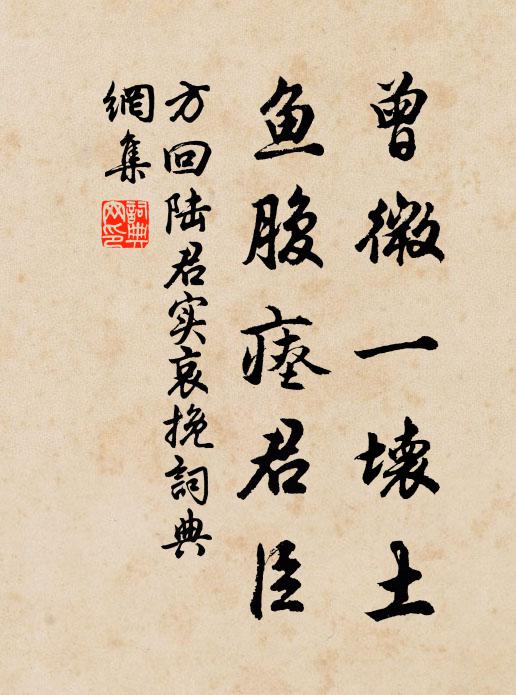 曾微一壞土
鱼腹瘗君臣
方回陆君实哀挽詞典
網集
詞典
网印